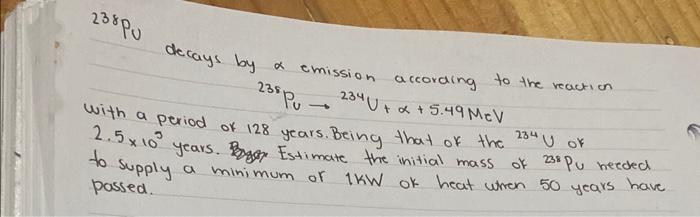 ²³⁸Pu decays by α emission according to the reaction
²³⁸Pu → ²³⁴U + α + 5.49 MeV
with a period of 128 years. Being that of the ²³⁴U of
2.5 x 10⁵ years. Estimate the initial mass of ²³⁸Pu needed
to supply a minimum of 1KW of heat when 50 years have
passed.